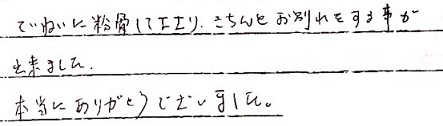 ていねいに粉骨して下さり、きちんとお別れをする事が
出来ました。
本当にありがとうございました。